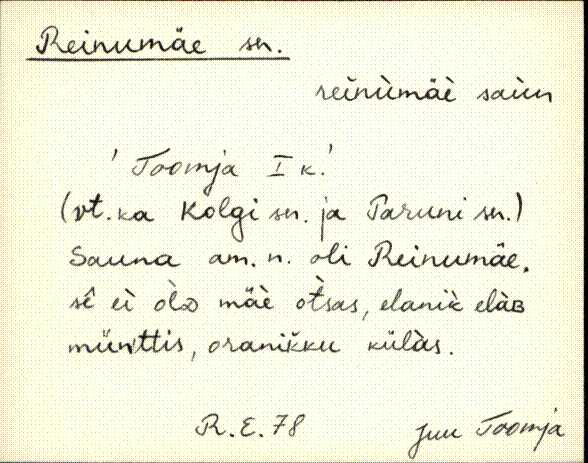 Reinumäe sn.
reinùmäè saùn
'Toomja I k.'
(vt. ka Kolgi sn. ja Paruni sn.)
Sauna am. n. oli Reinumäe.
sê eì òlɔ mäè òtsas, elanìk elàʙ
münttis, oranikku külàs.
R.E.78
Juu Toomja